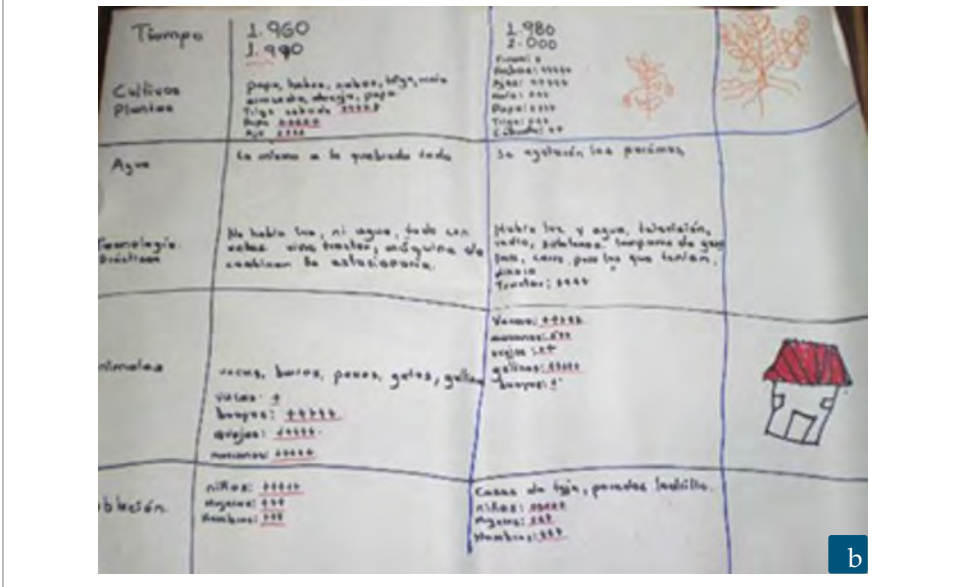 Tiempo
1.960
1.990
1.980
2.000
Cultivos
Plantas
papa, habas, nabos, trigo, maiz
arracacha, arveja, papa
Trigo cebada +++++
Papa +++++
Ajo ++++
Habas: +++++
Ajos: +++++
maiz: +++
Papa: ++++
Trigo: +++
Cebada: ++
Agua
Lo mismo a la quebrada todo
Se agotarón los paramos,
Prácticas
No habia luz, ni agua, todo con
vino tractor, máquina de
la estacionaria.
Habia luz y agua, televisión,
radio, lampara de
carro, para los que tenian,
dinero
Tractor: ++++
nimales
vacas, burros, perros, gatos, gallina
vacas: +
bueyes: +++++
ovejas: +++++
marranos: +++++
Vacas: +++++
marranos: +++
ovejas: ++
gallinas: +++++
bueyes: +
blación
niños: +++++
Mujeres: +++
Hombres: +++
Casas de teja, paredes ladrillo.
niños: +++++
Mujeres: +++
Hombres: +++
b